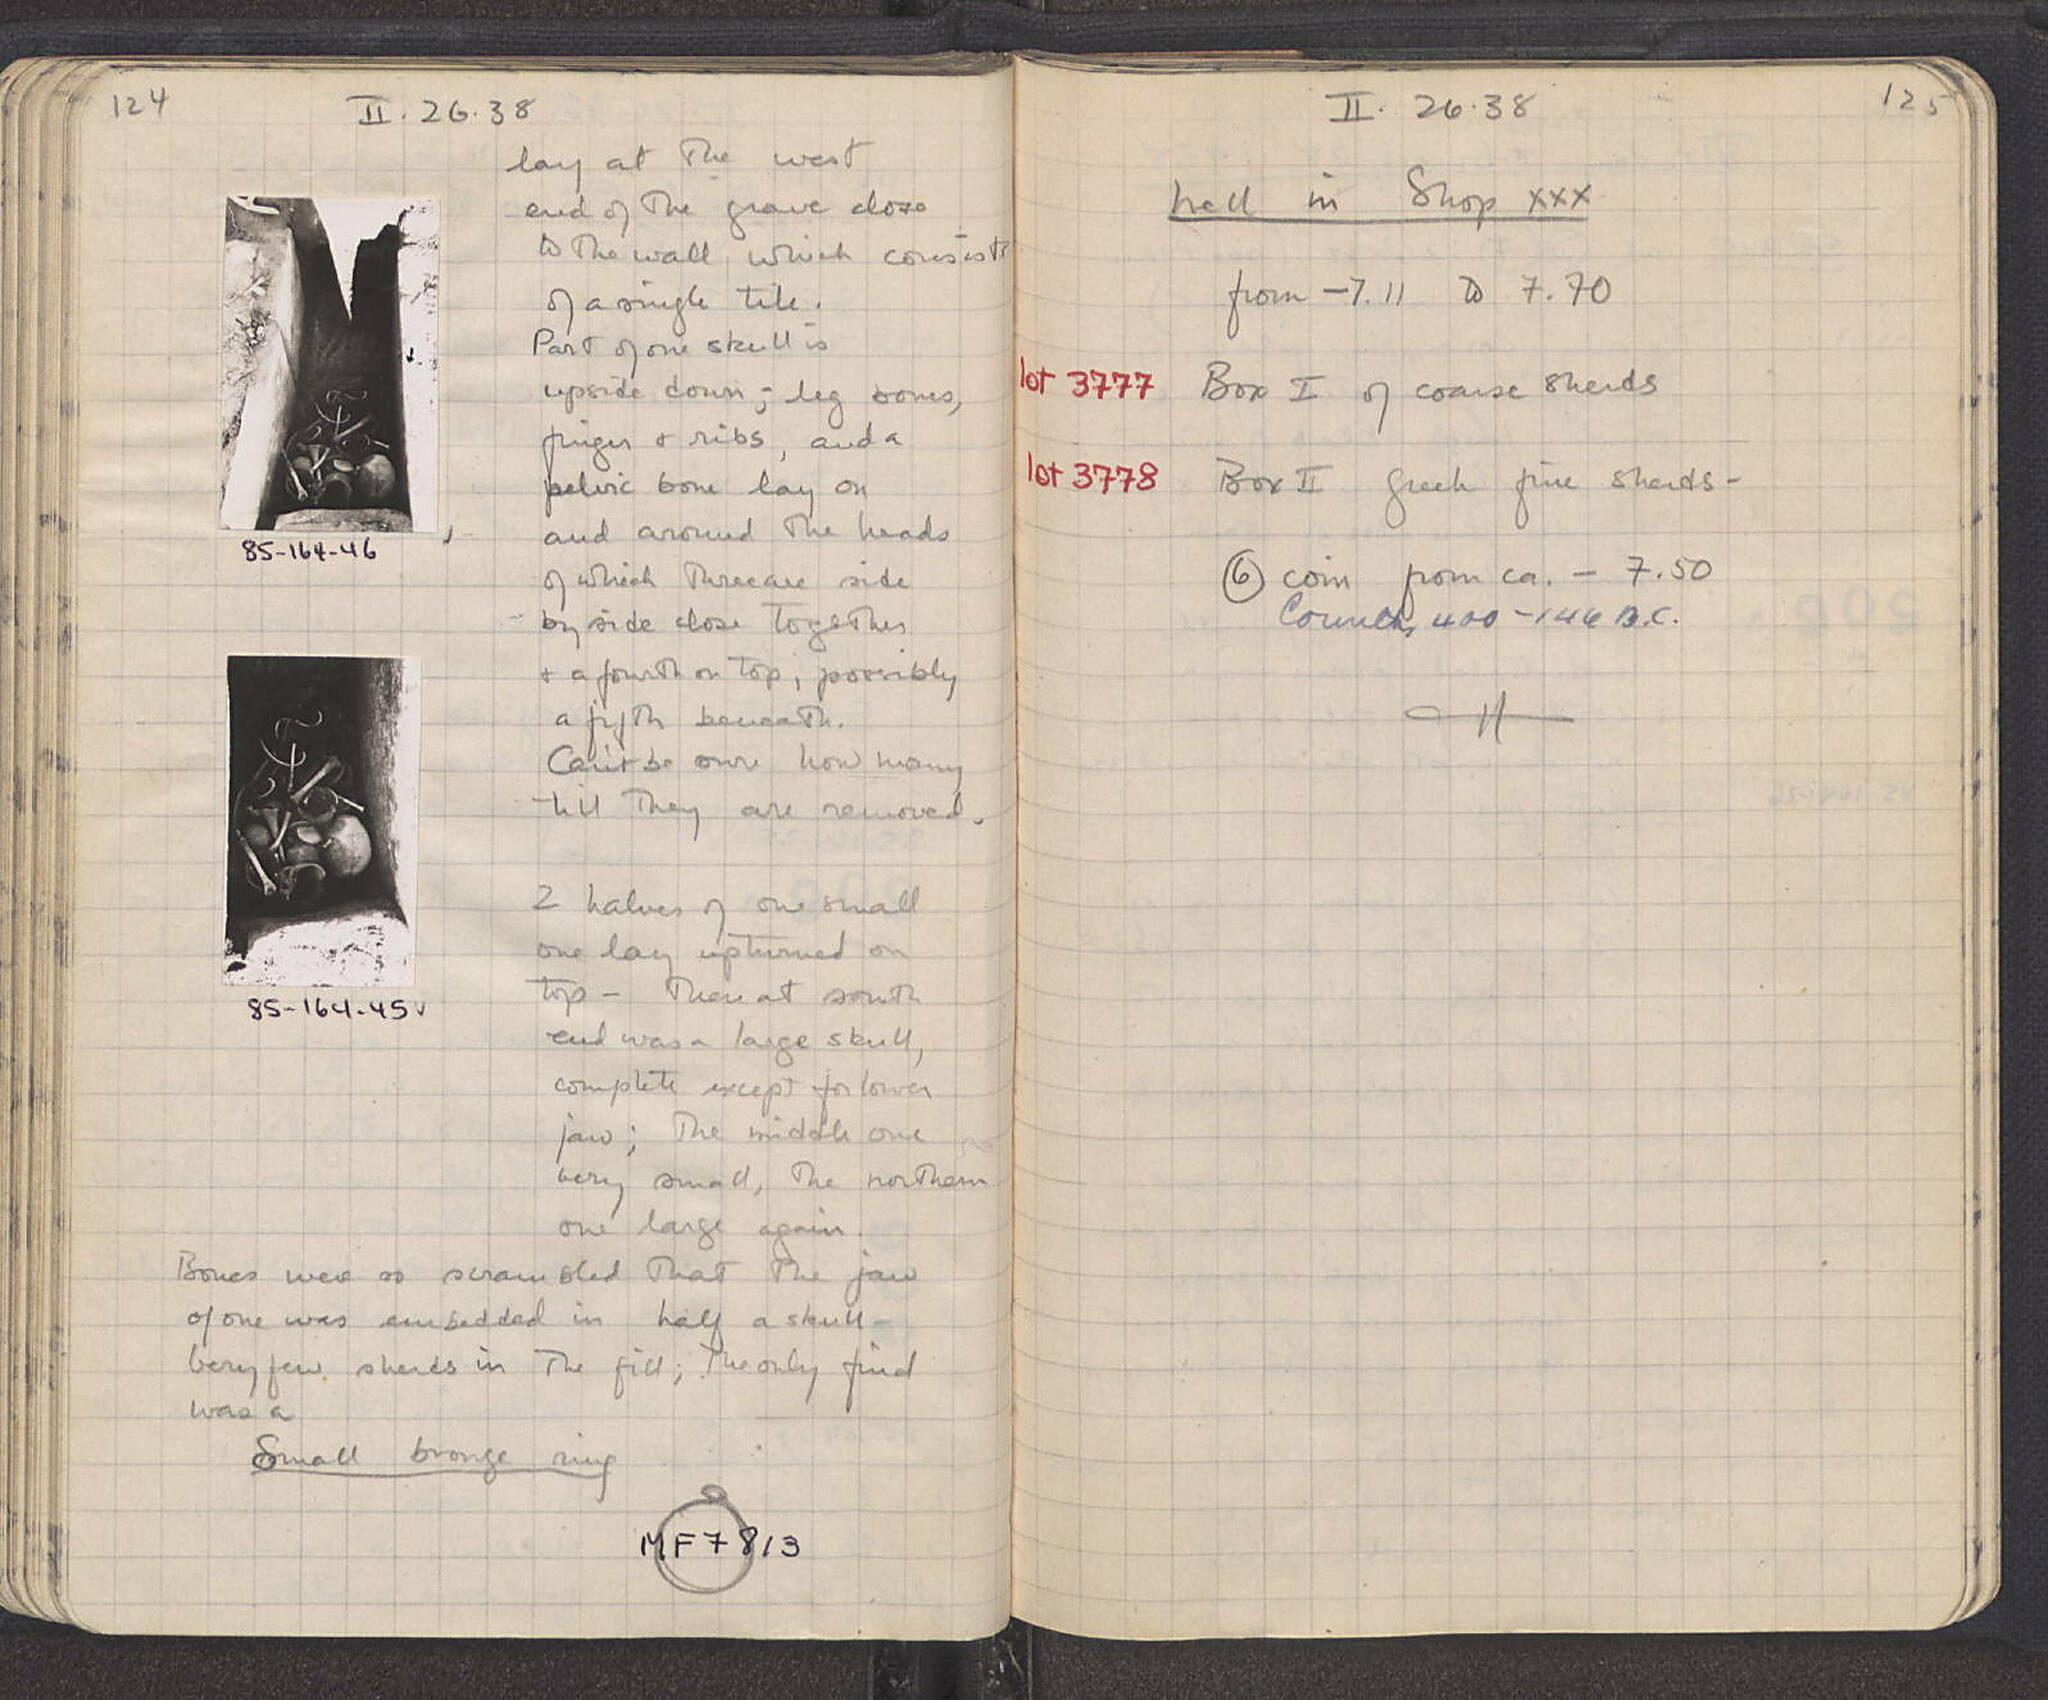 124
II. 26.38
lay at the west
end of the grave close
to the wall, which consists
of a single tile.
Part of one skull is
upside down; leg bones,
finger + ribs, and a
pelvic bone lay on
and around the heads
of which three are side
by side close together
+ a fourth on top, possibly
a fifth beneath.
Can't be sure how many
till they are removed.
85-164-46
2 halves of one small
one lay upturned on
top - then at south
end was a large skull,
complete except for lower
jaw; the middle one
very small, the northern
one large again.
85-164-45
Bones were so scrambled that the jaw
of one was embedded in half a skull -
very few sherds in the fill; the only find
was a
Small bronze ring
MF7813
II. 26.38
125
Well in Shop XXX
from -7.11 to 7.70
lot 3777 Box I of coarse sherds
lot 3778 Box II Greek fine sherds -
6 coin from ca. - 7.50
Corinth, 400-146 B.C.